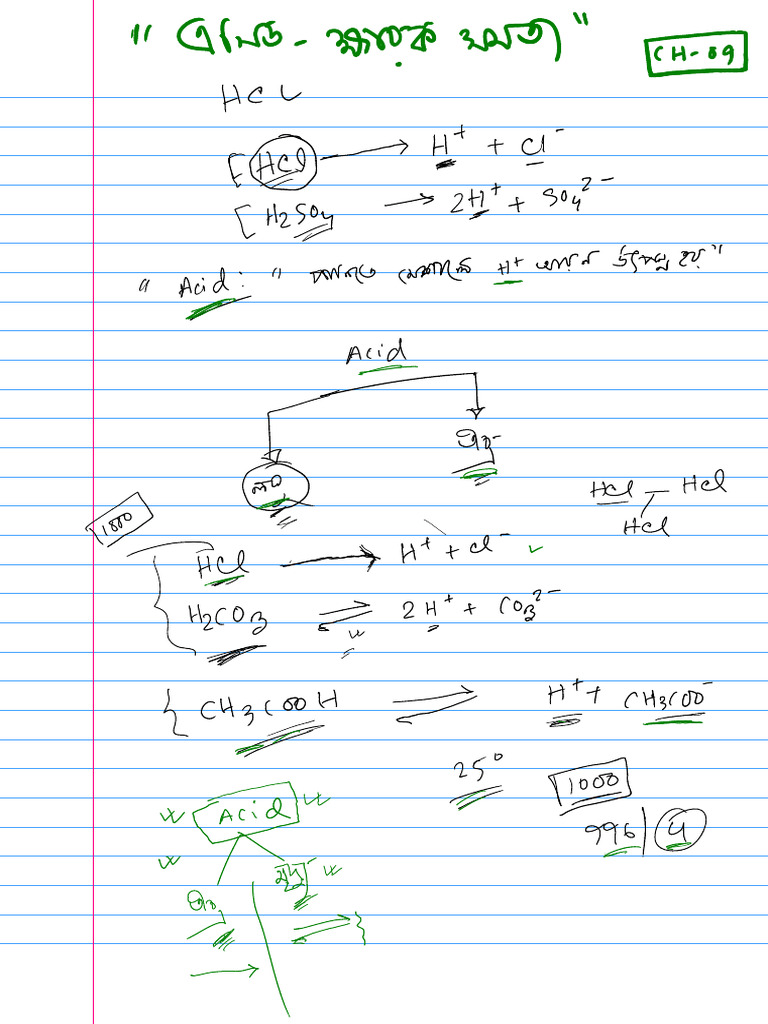 "এসিড-ক্ষারক সমতা"
CH-09
HCL
[HCl → H⁺ + Cl⁻
[H2SO4 → 2H⁺ + SO4²⁻
" Acid: " পানিতে মেশালে H⁺ আয়ন উৎপন্ন হয়"
Acid
তীব্র
HCl — HCl
HCl
1000
HCl → H⁺ + Cl⁻
H2CO3 ⇌ 2H⁺ + CO3²⁻
{ CH3COOH ⇌ H⁺ + CH3COO⁻
25°
1000
996 | 4
Acid
তীব্র মৃদু
⇌ }
→